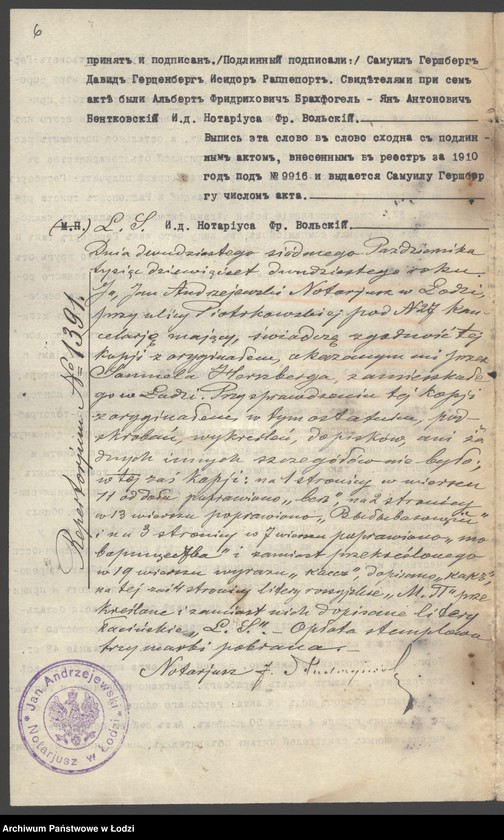 6
принятъ и подписанъ./Подлинный подписали:/ Самуилъ Гершбергъ
Давидъ Герценбергъ Исидоръ Раппепортъ. Свидѣтелями при семъ
актѣ были Альбертъ Фридриховичъ Брахфогель - Янъ Антоновичъ
Вентковскій И.д. Нотаріуса Фр. Вольскій.
Выпись эта слово въ слово сходна съ подлин-
нымъ актомъ, внесеннымъ въ реестръ за 1910
годъ подъ № 9916 и выдается Самуилу Гершбер
гу числомъ акта.
(М.П.) L. S. И.д. Нотаріуса Фр. Вольскій.
Dnia dwudziestego siódmego Października
tysiąc dziewięćset dwudziestego roku.
Ja, Jan Andrzejewski Notarjusz w Łodzi,
przy ulicy Piotrkowskiej pod N 27 kan-
celarję mający, świadczę zgodność tej
kopji z oryginałem, okazanym mi przez
Samuela Herszberga, zamieszkałe-
go w Łodzi. Przy sprawdzeniu tej kopji
z oryginałem, w tym ostatnim, pod-
skrobań, wykreśleń, dopisków, ani ża-
dnych innych szczegółów nie było;
w tej zaś kopji: na 1 stronicy w wierszu
11 od dołu poprawiono „безъ” na 2 stronicy
w 13 wierszu poprawiono
i na 3 stronicy w 7 wierszu poprawiono „то
варищества” i zamiast przekreślonego
w 19 wierszu wyrazu dopisano „какъ”,
na tej zaś 4 stronicy litery rosyjskie „М. П” prze
kreślone i zamiast nich dopisane litery
łacińskie „L. S”. – Opłata stemplowa
trzy marki pobrana. –
Notarjusz J. Andrzejewski
Repertorjum № 1391.
Jan Andrzejewski
* Notarjusz w Łodzi *
Archiwum Państwowe w Łodzi